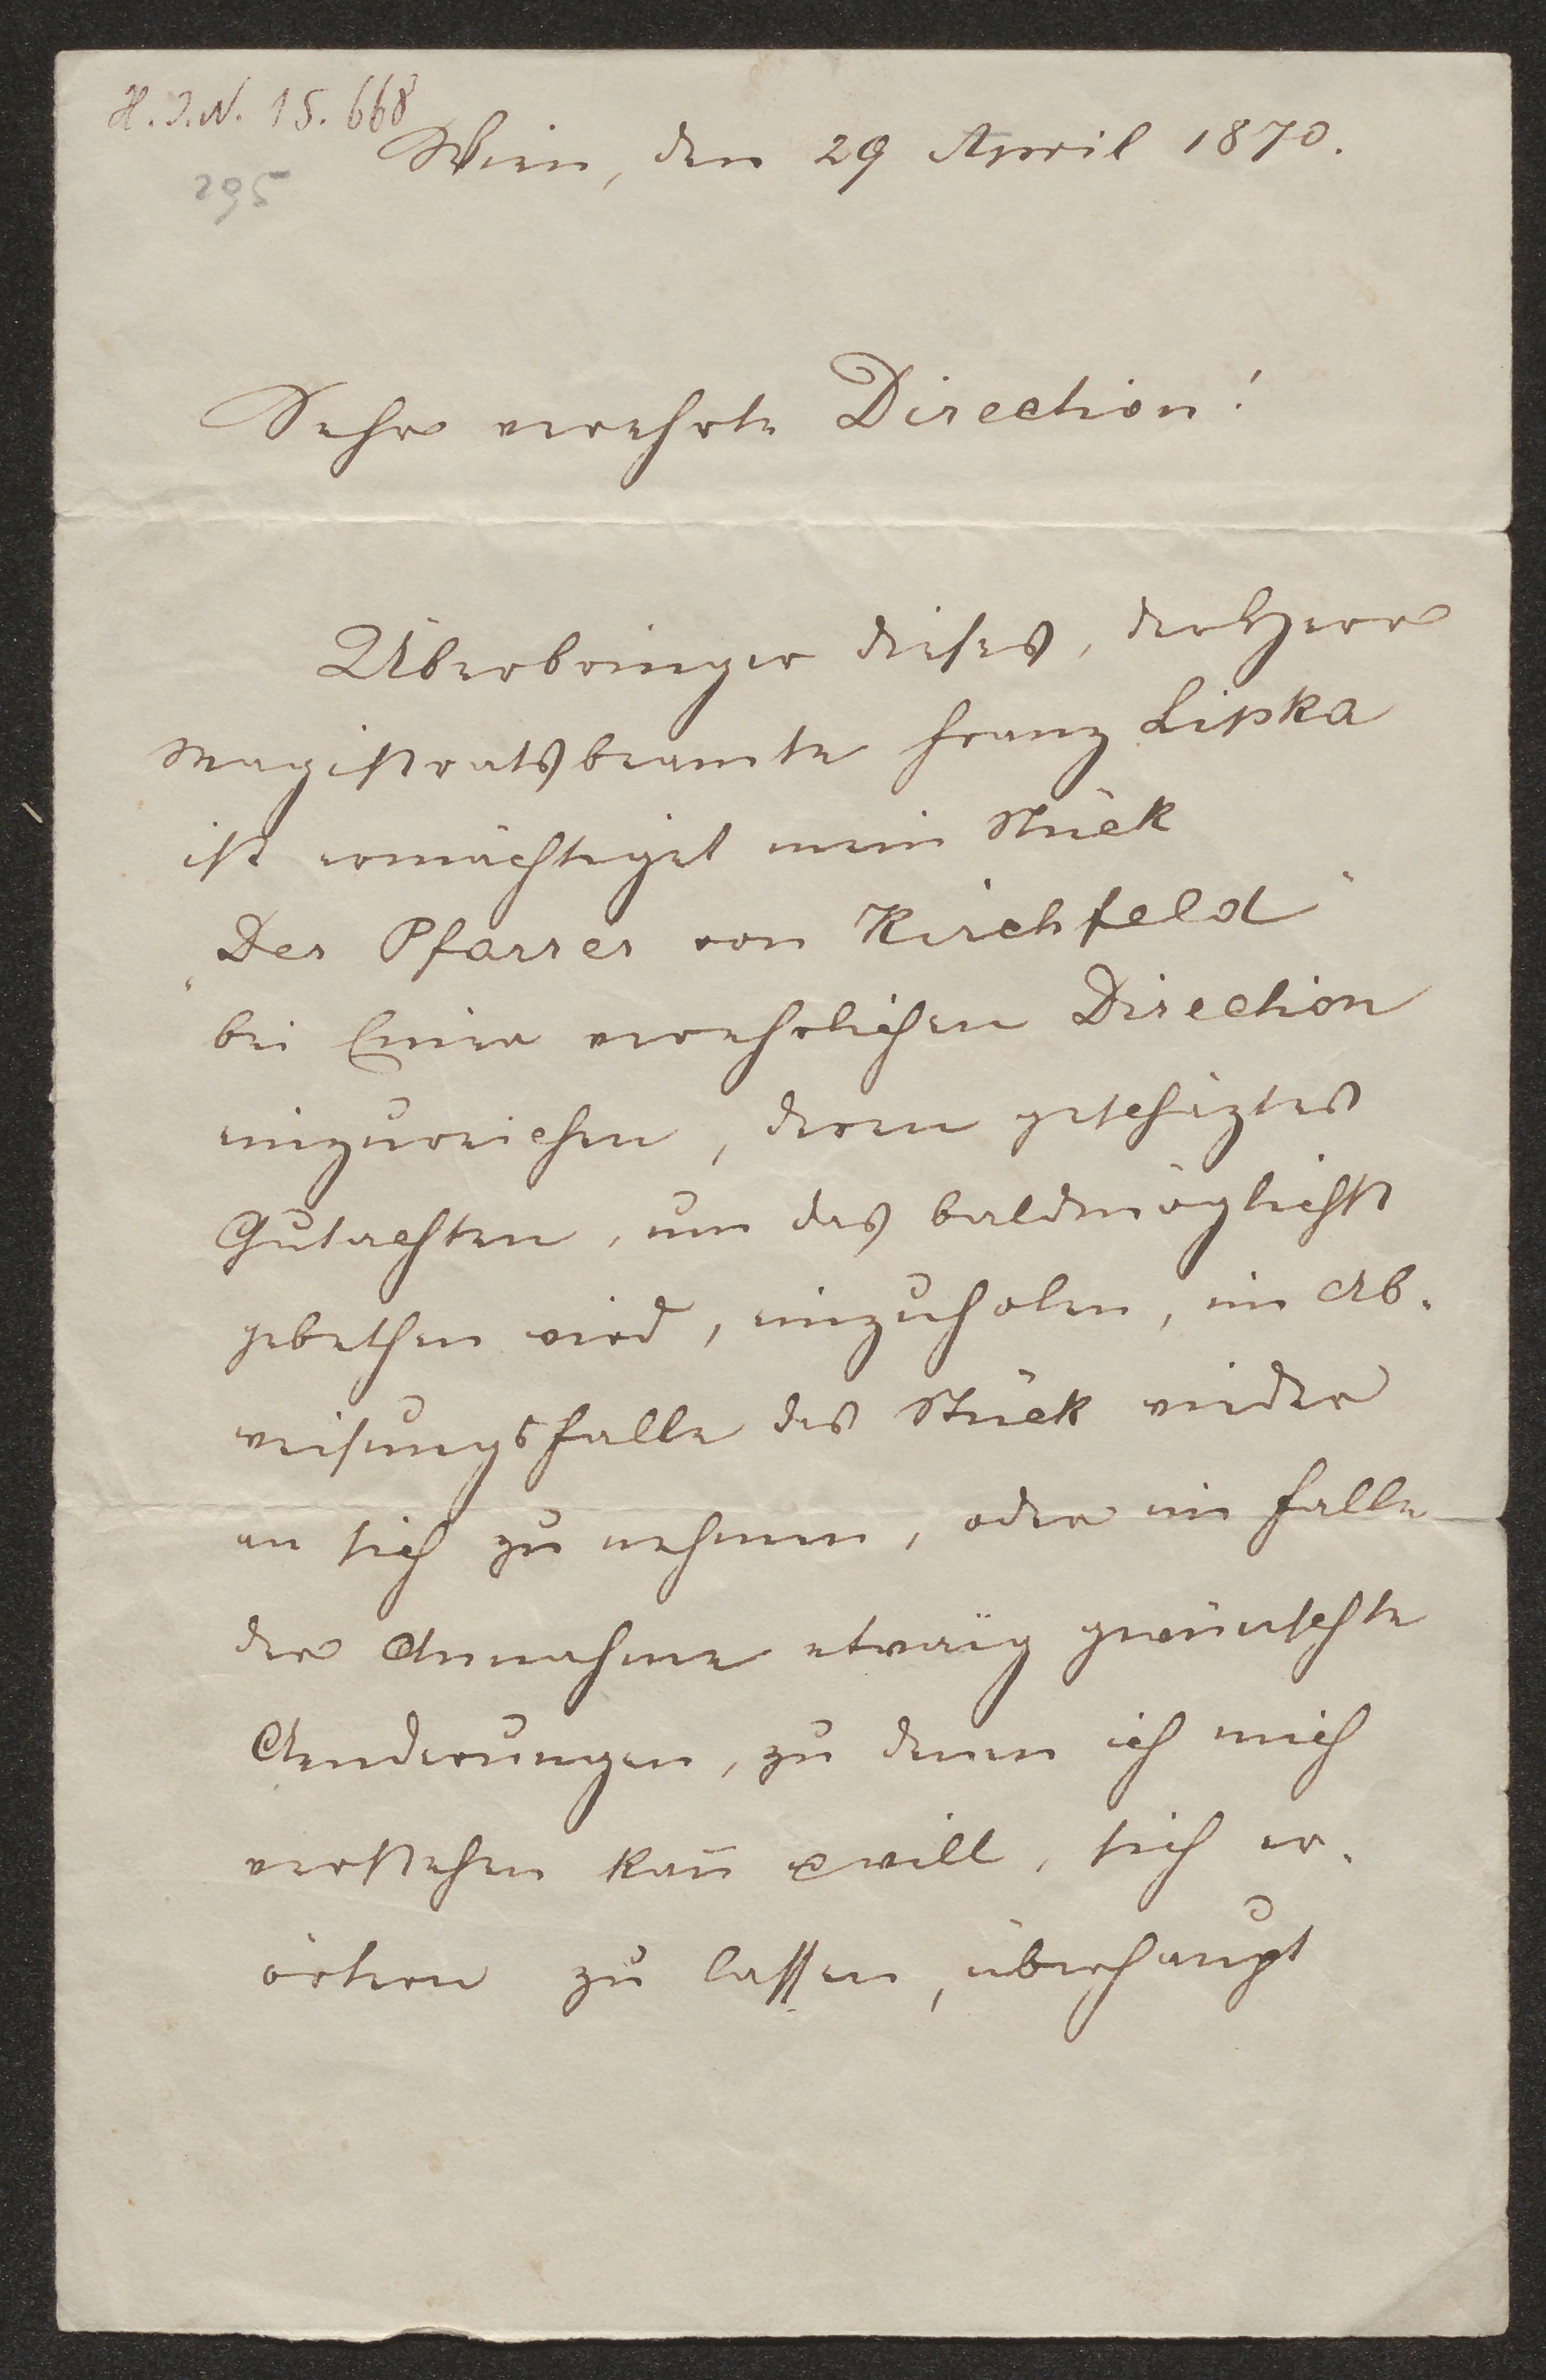 H.I.N. 15.668
295
Wien, den 29 April 1870.
Sehr verehrte Direction!
Überbringer dieses, der Herr
Magistratsbeamte Franz Lipka
ist ermächtiget mein Stück
„Der Pfarrer von Kirchfeld"
bei Einer verehrlichen Direction
einzureichen, deren geschäztes
Gutachten, um das baldmöglichst
gebethen wird, einzuholen, im Ab-
weisungsfalle das Stück wieder
an sich zu nehmen, oder im Falle
der Annahme etwaig gewünschte
Aenderungen, zu denen ich mich
verstehen kan̄ & will, sich er-
örtern zu lassen, überhaupt